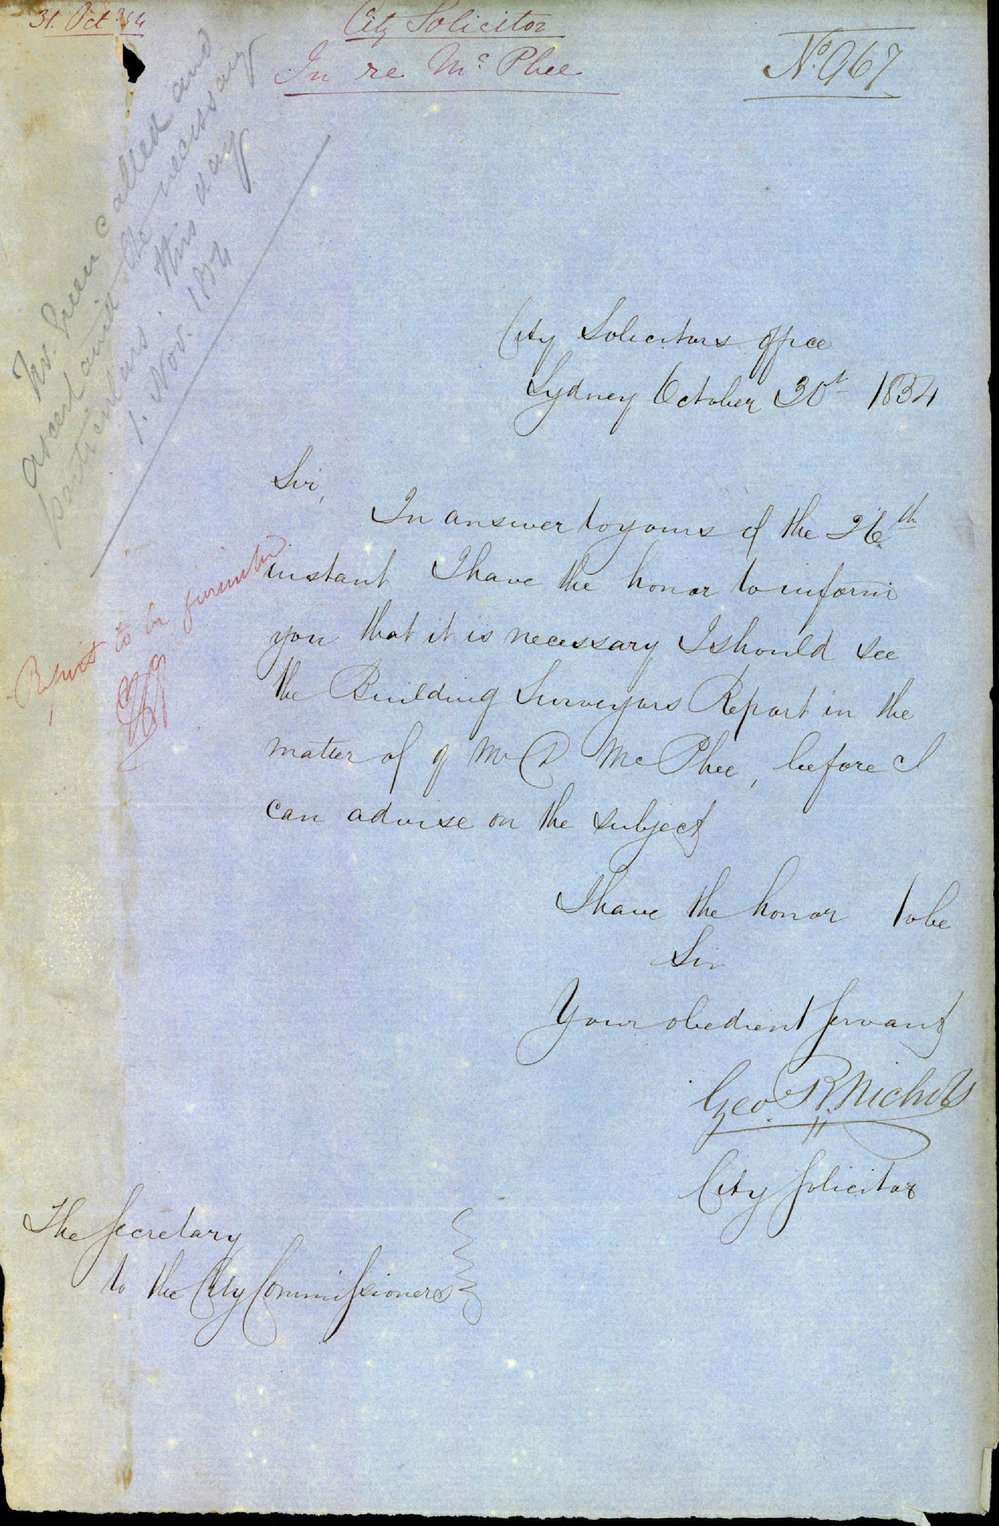 31. Oct. 54
City Solicitor
In re Mc Phee
No. 967
Mr. Green called and
ascertained the necessary
particulars this day
1. Nov. 1854
City Solicitors Office
Sydney October 30t 1854
Sir,
In answer to yours of the 26th
instant I have the honor to inform
you that it is necessary I should see
the Building Surveyors Report in the
matter of of Mr D McPhee, before I
can advise on the subject
Report to be furnished
I have the honor to be
Sir
Your obedient Servant
Geo. R. Nichols
City Solicitor
The Secretary
to the City Commissioners